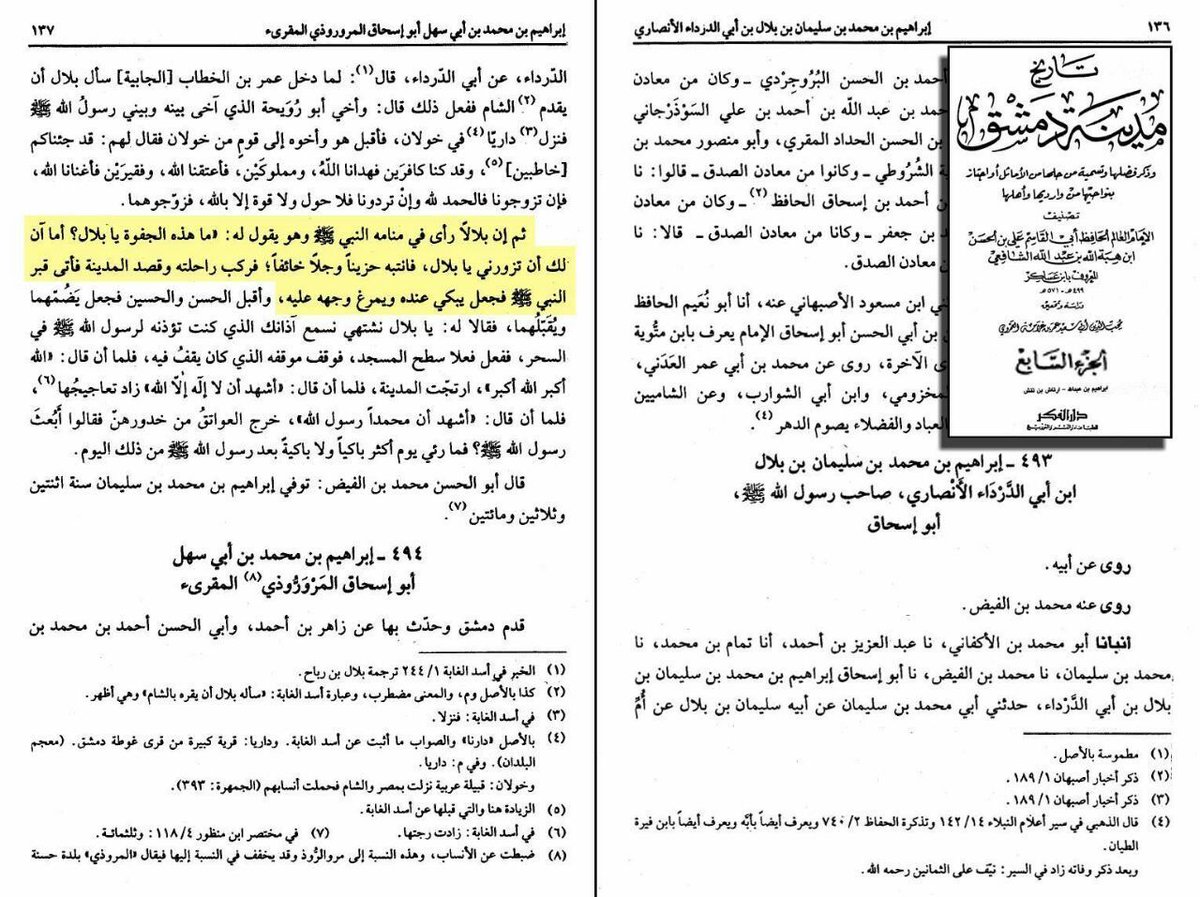 ١٣٦
إبراهيم بن محمد بن سليمان بن بلال بن أبي الدرداء الأنصاري
أحمد بن الحسن البُرُوجِردي ـ وكان من معادن
حمد بن عبد اللّه بن أحمد بن علي السَوْذَرْجاني
بن الحسن الحداد المقري، وأبو منصور محمد بن
ية الشُّرُوطي ـ وكانوا من معادن الصدق ـ قالوا: نا
أحمد بن إسحاق الحافظ(٢) ـ وكان من معادن
بن جعفر ـ وكانا من معادن الصدق ـ قالا: نا
معادن الصدق.
ني ابن مسعود الأصبهاني عنه، أنا أبو نُعَيم الحافظ
بن أبي الحسن أبو إسحاق الإمام يعرف بابن متُّوية
ى الآخرة، روى عن محمد بن أبي عمر العَدَني،
لمخزومي، وابن أبي الشوارب، وعن الشاميين
العباد والفضلاء يصوم الدهر(٤).
٤٩٣ ـ إبراهيم بن محمد بن سليمان بن بلال
ابن أبي الدَّرْدَاء الأَنْصاري، صاحب رسول الله ﷺ،
أبو إسحاق
روى عن أبيه.
روى عنه محمد بن الفيض.
انبانا أبو محمد بن الأكفاني، نا عبد العزيز بن أحمد، أنا تمام بن محمد، نا
محمد بن سليمان، نا محمد بن الفيض، نا أبو إسحاق إبراهيم بن محمد بن سليمان بن
بلال بن أبي الدَّرْداء، حدثني أبي محمد بن سليمان عن أبيه سليمان بن بلال عن أُمّ
(١) مطموسة بالأصل.
(٢) ذكر أخبار أصبهان ١/ ١٨٩.
(٣) ذكر أخبار أصبهان ١/ ١٨٩.
(٤) قال الذهبي في سير أعلام النبلاء ١٤/ ١٤٢ وتذكرة الحفاظ ٢/ ٧٤٠ ويعرف أيضاً بأبّه ويعرف أيضاً بابن فيرة
الطيان.
وبعد ذكر وفاته زاد في السير: نيّف على الثمانين رحمه الله.
تاريخ
مدينة دمشق
وذكر فضلها وتسمية من حلها من الأماثل أو اجتاز
بنواحيها من وارديها وأهلها
تصنيف
الإمام العالم الحافظ أبي القاسم علي بن الحسن
ابن هبة الله بن عبد الله الشافعي
المعروف بابن عساكر
٤٩٩هـ - ٥٧١هـ
دراسة وتحقيق
محب الدين أبي سعيد عمر بن غرامة العمروي
الجزء السابع
دار الفكر
للطباعة والنشر والتوزيع
إبراهيم بن محمد بن أبي سهل أبو إسحاق المروروذي المقرىء
١٣٧
الدرداء، عن أبي الدّرداء، قال(١): لما دخل عمر بن الخطاب [الجابية] سأل بلال أن
يقدم(٢) الشام ففعل ذلك قال: وأخي أبو رُوَيحة الذي آخى بينه وبيني رسولُ الله ﷺ
فنزل(٣) داريّا(٤) في خولان، فأقبل هو وأخوه إلى قومٍ من خولان فقال لهم: قد جئناكم
[خاطبين](٥)، وقد كنا كافرَين فهدانا اللّهُ، ومملوكَيْن، فأعتقنا الله، وفقيرَيْن فأغنانا الله،
فإن تزوجونا فالحمد لله وإنْ تردونا فلا حول ولا قوة إلا بالله، فزوّجوهما.
ثم إن بلالاً رأى في منامه النبي ﷺ وهو يقول له: «ما هذه الجفوة يا بلال؟ أما آن
لك أن تزورني يا بلال، فانتبه حزيناً وجلاً خائفاً؛ فركب راحلته وقصد المدينة فأتى قبر
النبي ﷺ فجعل يبكي عنده ويمرغ وجهه عليه، وأقبل الحسن والحسين فجعل يَضُمّهما
ويُقَبّلُهما، فقالا له: يا بلال نشتهي نسمع آذانك الذي كنت تؤذنه لرسول الله ﷺ في
السحر، ففعل فعلا سطح المسجد، فوقف موقفه الذي كان يقفُ فيه، فلما أن قال: «الله
أكبر الله أكبر»، ارتجّت المدينة، فلما أن قال: «أشهد أن لا إلٰه إلاّ الله» زاد تعاجيجُها(٦)،
فلما أن قال: «أشهد أن محمداً رسول الله»، خرج العواتقُ من خدورهنّ فقالوا أَبُعثَ
رسول الله ﷺ؟ فما رئي يوم أكثر باكياً ولا باكيةً بعد رسول الله ﷺ من ذلك اليوم.
قال أبو الحسن محمد بن الفيض: توفي إبراهيم بن محمد بن سليمان سنة اثنتين
وثلاثين ومائتين(٧).
٤٩٤ ـ إبراهيم بن محمد بن أبي سهل
أبو إسحاق المَرْوَرُّوذي(٨) المقرىء
قدم دمشق وحدّث بها عن زاهر بن أحمد، وأبي الحسن أحمد بن محمد بن
(١) الخبر في أسد الغابة ١/ ٢٤٤ ترجمة بلال بن رباح.
(٢) كذا بالأصل وم، والمعنى مضطرب، وعبارة أسد الغابة: «سأله بلال أن يقره بالشام» وهي أظهر.
(٣) في أسد الغابة: فنزلا.
(٤) بالأصل «دارنا» والصواب ما أثبت عن أسد الغابة. وداريا: قرية كبيرة من قرى غوطة دمشق. (معجم
البلدان). وفي م: داريا.
وخولان: قبيلة عربية نزلت بمصر والشام فحملت أنسابهم (الجمهرة: ٣٩٣).
(٥) الزيادة هنا والتي قبلها عن أسد الغابة.
(٦) في أسد الغابة: زادت رجتها. (٧) في مختصر ابن منظور ٤/ ١١٨: وثلثمائة.
(٨) ضبطت عن الأنساب، وهذه النسبة إلى مروالرُّوذ وقد يخفف في النسبة إليها فيقال «المروذي» بلدة حسنة